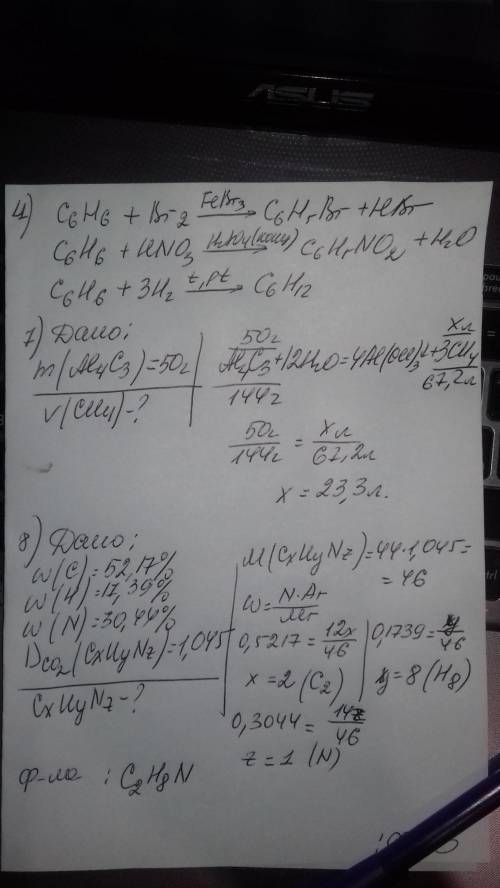 ASUS
4) C₆H₆ + Br₂ —FeBr₃→ C₆H₅Br + HBr
C₆H₆ + HNO₃ —H₂SO₄(конц)→ C₆H₅NO₂ + H₂O
C₆H₆ + 3H₂ —t, Pt→ C₆H₁₂
7) Дано:
m(Al₄C₃)=50г
V(CH₄)-?
50г xл
Al₄C₃+12H₂O=4Al(OH)₃↓+3CH₄
144г 67,2л
50г/144г = xл/67,2л
x = 23,3л.
8) Дано:
w(C)=52,17%
w(H)=17,39%
w(N)=30,44%
D CO₂ (CxHyNz)=1,045
CxHyNz-?
M(CxHyNz)=44·1,045=
=46
w=N·Ar/Mr
0,5217=12x/46
x=2(C₂)
0,1739=y/46
y=8(H₈)
0,3044=14z/46
z=1 (N)
ф-ла : C₂H₈N